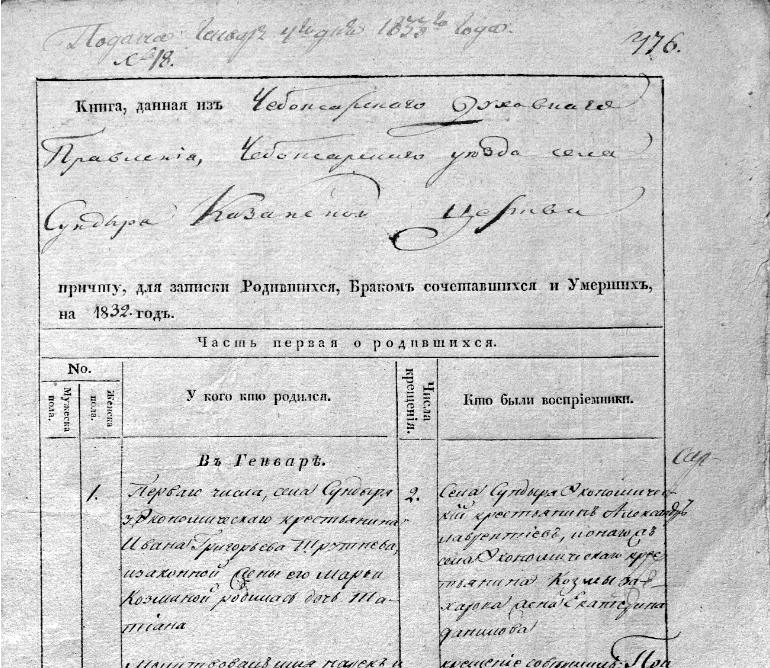 Подана Генваря 4го дня 1833го года.
№ 18.
776.
Книга, данная изъ Чебоксарскаго Духовнаго
Правленія, Чебоксарскаго уѣзда села
Сундыря Казанской церкви
причту, для записки Родившихся, Бракомъ сочетавшихся и Умершихъ,
на 1832 годъ.
Часть первая о родившихся.
No.
Мужеска пола.
Женска пола.
У кого кто родился.
Числа крещенія.
Кто были воспріемники.
Въ Генварѣ.
1.
Перваго числа, села Сундыря
экономическаго крестьянина
Ивана Григорьева
изаконной жены его Марьи
Козминой родилась дочь Та-
тіана
2.
Села Сундыря Экономичес-
кій крестьянинъ Александръ
Лаврентіевъ,
села Экономическаго крес-
тьянина Козмы За-
харова жена Екатерина
Данилова
крещеніе